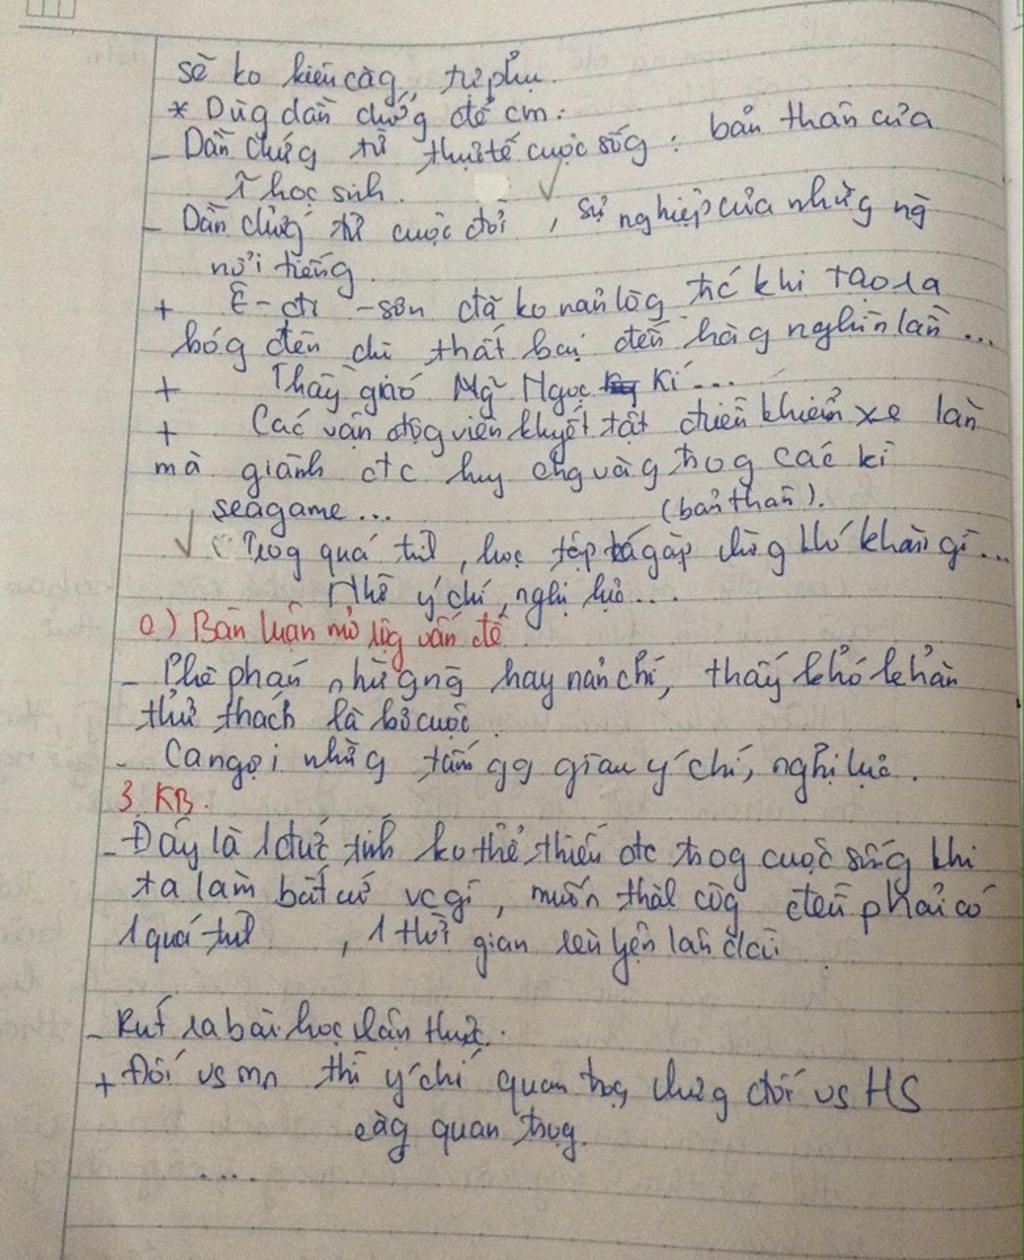 sẽ ko kiêu căg, tự phụ.
* Dùg dẫn chứg để cm:
- Dẫn chứg từ thực tế cuộc sốg : bản thân của
1 học sinh.
- Dẫn chứg từ cuộc đời, sự nghiệp của nhữg ng
nổi tiếng.
+ Ê-đi-sơn đã ko nản lòg trc khi tạo ra
bóg đèn dù thất bại đến hàg nghìn lần...
+ Thầy giáo Ng~ Ngọc Kí...
+ Các vận độg viên khuyết tật điều khiển xe lăn
mà giành đc huy chg vàg trog các kì
seagame...
(bản thân).
Trog quá trình, học tập gặp nhữg khó khăn gì...
Nhờ ý chí, nghị lực...
c) Bàn luận mở rộg vấn đề
- Phê phán nhữg ng hay nản chí, thấy khó khăn
thử thách là bỏ cuộc.
- Ca ngợi nhữg tấm gg giàu ý chí, nghị lực.
3. KB.
- Đây là 1 đức tính ko thể thiếu đc trog cuộc sốg khi
ta làm bất cứ vc gì, muốn thàh côg đều phải có
1 quá trình, 1 thời gian rèn luyện lâu dài
- Rút ra bài học nhận thức.
+ Đối vs mn thì ý chí quan trọg nhưg đối vs HS
càg quan trọg.
....